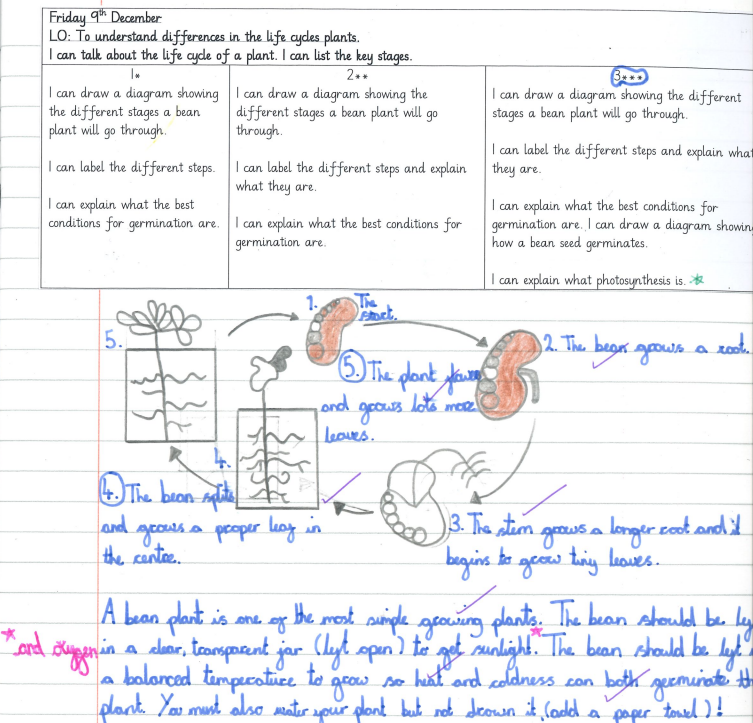 Friday 9th December
LO: To understand differences in the life cycles plants.
I can talk about the life cycle of a plant. I can list the key stages.
1*
I can draw a diagram showing
the different stages a bean
plant will go through.
I can label the different steps.
I can explain what the best
conditions for germination are.
2**
I can draw a diagram showing the
different stages a bean plant will go
through.
I can label the different steps and explain
what they are.
I can explain what the best conditions for
germination are.
3***
I can draw a diagram showing the different
stages a bean plant will go through.
I can label the different steps and explain what
they are.
I can explain what the best conditions for
germination are. I can draw a diagram showing
how a bean seed germinates.
I can explain what photosynthesis is.
1. The
start.
2. The bean grows a root.
3. The stem grows a longer root and it
begins to grow tiny leaves.
4.
4. The bean splits
and grows a proper leaf in
the centre.
5.
5. The plant
and grows lots more
leaves.
A bean plant is one of the most simple growing plants. The bean should be
in a clear, transparent jar (left open) to get sunlight.* The bean should be left
* and oxygen
a balanced temperature to grow so heat and coldness can both germinate
plant. You must also water your plant but not drown it, (add a paper towel)!